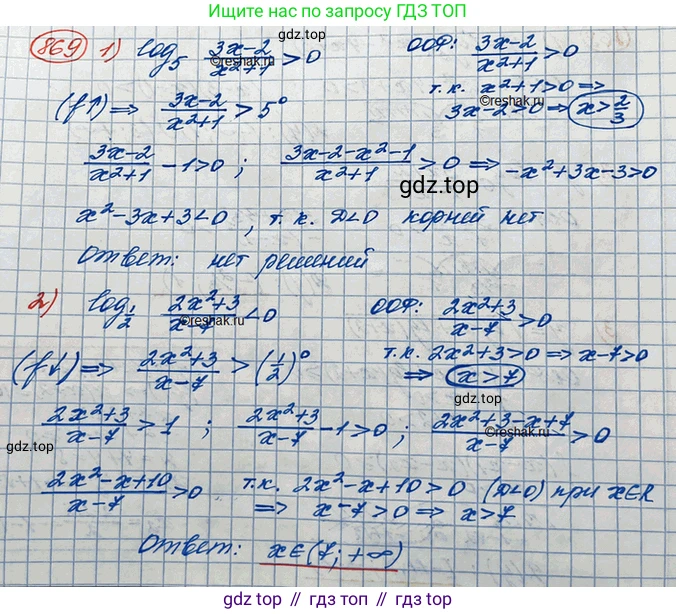 Ищите ответы по запросу ГДЗ ТОП
869 1) log₅ (3x-2)/(x²+1) > 0   ООФ: (3x-2)/(x²+1) > 0
©reshak.ru
т.к. x²+1>0 ⇒
(f↑) ⇒ (3x-2)/(x²+1) > 5⁰   3x-2>0 ⇒ x>2/3
©reshak.ru
(3x-2)/(x²+1) - 1>0 ; (3x-2-x²-1)/(x²+1) > 0 ⇒ -x²+3x-3>0
gdz.top
x²-3x+3<0, т.к. D<0 корней нет
Ответ: нет решений
2) log_{1/2} (2x²+3)/(x-7) < 0   ООФ: (2x²+3)/(x-7) > 0
©reshak.ru
т.к. 2x²+3>0 ⇒ x-7>0
(f↓) ⇒ (2x²+3)/(x-7) > (1/2)⁰   ⇒ x>7
(2x²+3)/(x-7) > 1 ; (2x²+3)/(x-7) - 1>0 ; (2x²+3-x+7)/(x-7) > 0
gdz.top
©reshak.ru
(2x²-x+10)/(x-7) > 0   т.к. 2x²-x+10>0 (D<0) при x∈R
⇒ x-7>0 ⇒ x>7
Ответ: x∈(7;+∞)
gdz.top // гдз.топ // gdz.top